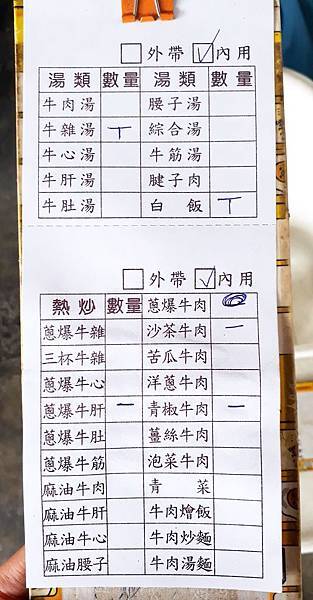 外帶 ✓內用
湯類 數量 湯類 數量
牛肉湯 腰子湯
牛雜湯 丅 綜合湯
牛心湯 牛筋湯
牛肝湯 腱子肉
牛肚湯 白飯 丅
外帶 ✓內用
熱炒 數量 蔥爆牛肉
蔥爆牛雜 沙茶牛肉 一
三杯牛雜 苦瓜牛肉
蔥爆牛心 洋蔥牛肉
蔥爆牛肝 一 青椒牛肉 一
蔥爆牛肚 薑絲牛肉
蔥爆牛筋 泡菜牛肉
麻油牛肉 青菜
麻油牛肝 牛肉燴飯
麻油牛心 牛肉炒麵
麻油腰子 牛肉湯麵